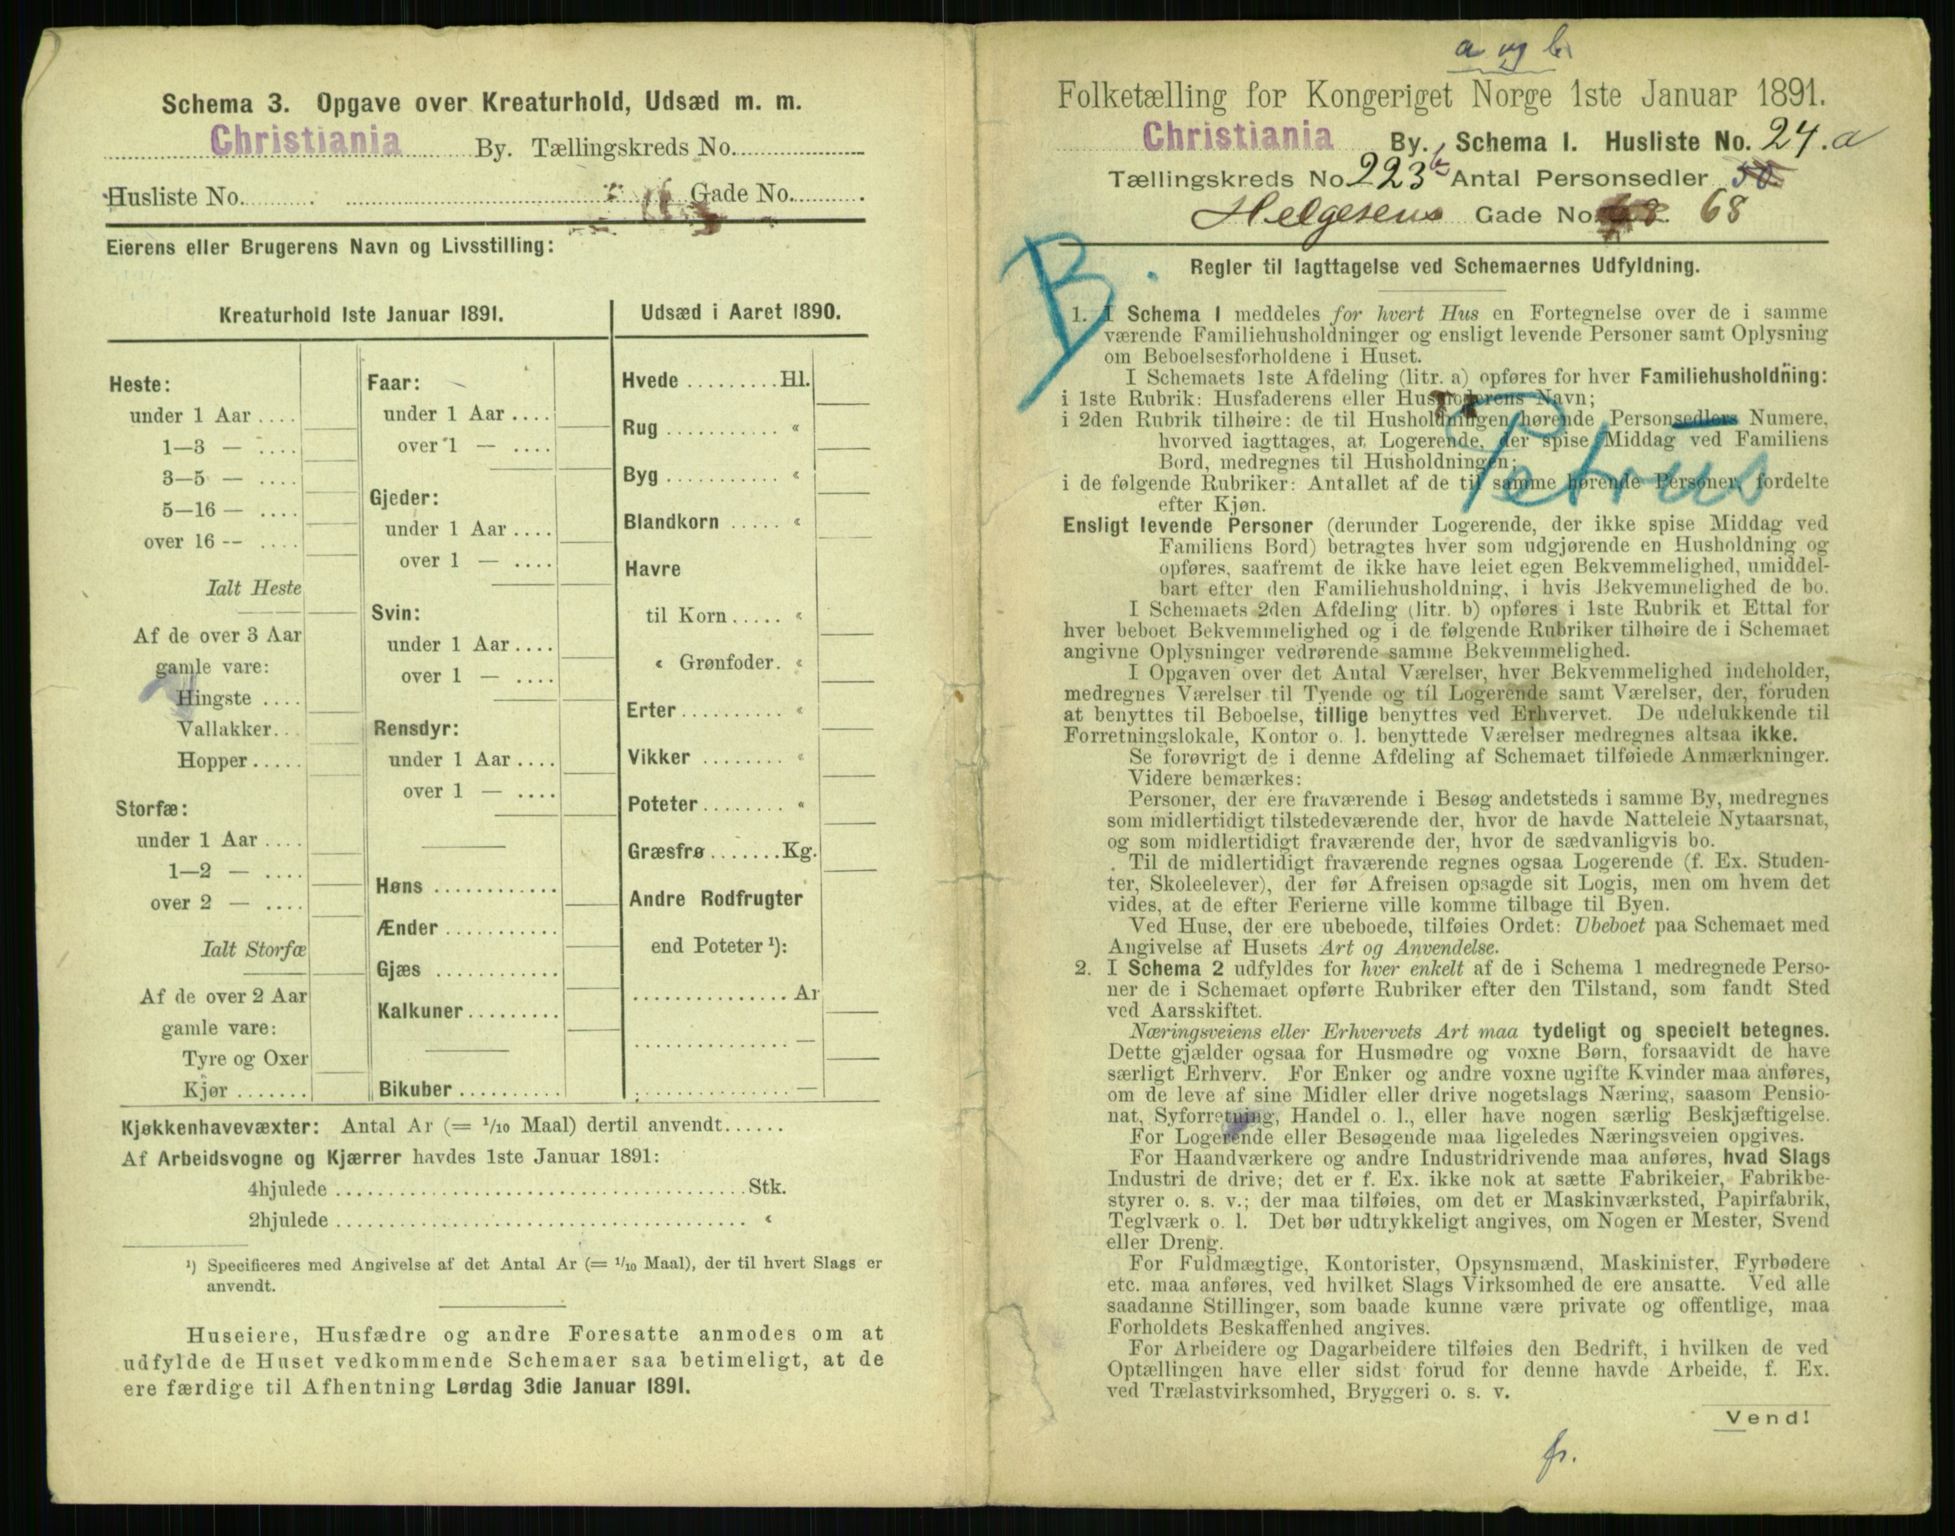 Schema 3. Opgave over Kreaturhold, Udsæd m. m.
Christiania By. Tællingskreds No.
Husliste No. Gade No.
Eierens eller Brugerens Navn og Livsstilling:
Kreaturhold 1ste Januar 1891.
Heste:
under 1 Aar ....
1—3 — ....
3—5 — ....
5—16 — ....
over 16 — ....
Ialt Heste
Af de over 3 Aar
gamle vare:
Hingste ....
Vallakker..
Hopper.....
Storfæ:
under 1 Aar ....
1—2 — ....
over 2 — ....
Ialt Storfæ
Af de over 2 Aar
gamle vare:
Tyre og Oxer
Kjør .......
Faar:
under 1 Aar ....
over 1 — ....
Gjeder:
under 1 Aar ....
over 1 — ....
Svin:
under 1 Aar ....
over 1 — ....
Rensdyr:
under 1 Aar ....
over 1 — ....
Høns ............
Ænder ...........
Gjæs ............
Kalkuner.........
Bikuber ..........
Udsæd i Aaret 1890.
Hvede .........Hl.
Rug ........... «
Byg ........... «
Blandkorn ..... «
Havre
til Korn..... «
« Grønfoder. «
Erter.......... «
Vikker ........ «
Poteter........ «
Græsfrø.......Kg.
Andre Rodfrugter
end Poteter ¹):
............... Ar
............... —
............... —
Kjøkkenhavevæxter: Antal Ar (= 1/10 Maal) dertil anvendt......
Af Arbeidsvogne og Kjærrer havdes 1ste Januar 1891:
4hjulede ....................................Stk.
2hjulede .................................... «
¹) Specificeres med Angivelse af det Antal Ar (= 1/10 Maal), der til hvert Slags er
anvendt.
Huseiere, Husfædre og andre Foresatte anmodes om at
udfylde de Huset vedkommende Schemaer saa betimeligt, at de
ere færdige til Afhentning Lørdag 3die Januar 1891.
a og b
Folketælling for Kongeriget Norge 1ste Januar 1891.
Christiania By. Schema I. Husliste No. 24.a
Tællingskreds No 223 b Antal Personsedler 50
Helgesens Gade No. 68
B.
Regler til Iagttagelse ved Schemaernes Udfyldning.
1. I Schema 1 meddeles for hvert Hus en Fortegnelse over de i samme
værende Familiehusholdninger og ensligt levende Personer samt Oplysning
om Beboelsesforholdene i Huset.
I Schemaets 1ste Afdeling (litr. a) opføres for hver Familiehusholdning:
i 1ste Rubrik: Husfaderens eller Husmoderens Navn;
i 2den Rubrik tilhøire: de til Husholdningen hørende Personsedlers Numere,
hvorved iagttages, at Logerende, der spise Middag ved Familiens
Bord, medregnes til Husholdningen;
Petrus
i de følgende Rubriker: Antallet af de til samme hørende Personer, fordelte
efter Kjøn.
Ensligt levende Personer (derunder Logerende, der ikke spise Middag ved
Familiens Bord) betragtes hver som udgjørende en Husholdning og
opføres, saafremt de ikke have leiet egen Bekvemmelighed, umiddel-
bart efter den Familiehusholdning, i hvis Bekvemmelighed de bo.
I Schemaets 2den Afdeling (litr. b) opføres i 1ste Rubrik et Ettal for
hver beboet Bekvemmelighed og i de følgende Rubriker tilhøire de i Schemaet
angivne Oplysninger vedrørende samme Bekvemmelighed.
I Opgaven over det Antal Værelser, hver Bekvemmelighed indeholder,
medregnes Værelser til Tyende og til Logerende samt Værelser, der, foruden
at benyttes til Beboelse, tillige benyttes ved Erhvervet. De udelukkende til
Forretningslokale, Kontor o. l. benyttede Værelser medregnes altsaa ikke.
Se forøvrigt de i denne Afdeling af Schemaet tilføiede Anmærkninger.
Videre bemærkes:
Personer, der ere fraværende i Besøg andetsteds i samme By, medregnes
som midlertidigt tilstedeværende der, hvor de havde Natteleie Nytaarsnat,
og som midlertidigt fraværende der, hvor de sædvanligvis bo.
Til de midlertidigt fraværende regnes ogsaa Logerende (f. Ex. Studen-
ter, Skoleelever), der før Afreisen opsagde sit Logis, men om hvem det
vides, at de efter Ferierne ville komme tilbage til Byen.
Ved Huse, der ere ubeboede, tilføies Ordet: Ubeboet paa Schemaet med
Angivelse af Husets Art og Anvendelse.
2. I Schema 2 udfyldes for hver enkelt af de i Schema 1 medregnede Perso-
ner de i Schemaet opførte Rubriker efter den Tilstand, som fandt Sted
ved Aarsskiftet.
Næringsveiens eller Erhvervets Art maa tydeligt og specielt betegnes.
Dette gjælder ogsaa for Husmødre og voxne Børn, forsaavidt de have
særligt Erhverv. For Enker og andre voxne ugifte Kvinder maa anføres,
om de leve af sine Midler eller drive nogetslags Næring, saasom Pensio-
nat, Syforretning, Handel o. l., eller have nogen særlig Beskjæftigelse.
For Logerende eller Besøgende maa ligeledes Næringsveien opgives.
For Haandværkere og andre Industridrivende maa anføres, hvad Slags
Industri de drive; det er f. Ex. ikke nok at sætte Fabrikeier, Fabrikbe-
styrer o. s. v.; der maa tilføies, om det er Maskinværksted, Papirfabrik,
Teglværk o. l. Det bør udtrykkeligt angives, om Nogen er Mester, Svend
eller Dreng.
For Fuldmægtige, Kontorister, Opsynsmænd, Maskinister, Fyrbødere
etc. maa anføres, ved hvilket Slags Virksomhed de ere ansatte. Ved alle
saadanne Stillinger, som baade kunne være private og offentlige, maa
Forholdets Beskaffenhed angives.
For Arbeidere og Dagarbeidere tilføies den Bedrift, i hvilken de ved
Optællingen have eller sidst forud for denne havde Arbeide, f. Ex.
ved Trælastvirksomhed, Bryggeri o. s. v.
Vend!
fr.